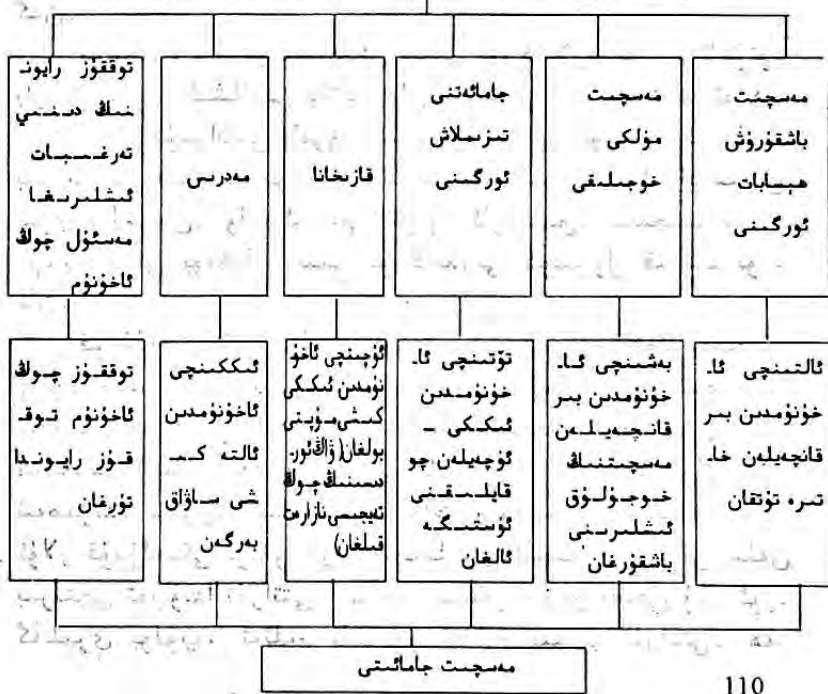 مەسچىت
باشقۇرۇش
ھېسابات
ئورگىنى
مەسچىت
مۈلكى
خوجىلىقى
جامائەتنى
تىزىملاش
ئورگىنى
قازىخانا
مەدرىس
توققۇز رايون-
نىڭ دىنىي
تەرغىبات
ئىشلىرىغا
مەسئۇل چوڭ
ئاخۇنۇم
ئالتىنچى ئا-
خۇنۇمدىن بىر
قانچەيلەن خا-
تىرە تۇتقان
بەشىنچى ئا-
خۇنۇمدىن بىر
قانچەيلەن
مەسچىتنىڭ
خوجۇلۇق
ئىشلىرىنى
باشقۇرغان
تۆتىنچى ئا-
خۇنۇمدىن
ئىككى -
ئۈچەيلەن چو
قايلىقنى
ئۈستىگە
ئالغان
ئۈچىنچى ئاخۇ
نۇمدىن ئىككى
كىشى مۇپتى
بولغان( ۋاڭ ئور-
دىسىنىڭ چوڭ
تەيجىسى نازارەت
قىلغان)
ئىككىنچى
ئاخۇنۇمدىن
ئالتە كى-
شى ساۋاق
بەرگەن
توققۇز چوڭ
ئاخۇنۇم توق-
قۇز رايوندا
تۇرغان
مەسچىت جامائىتى
110